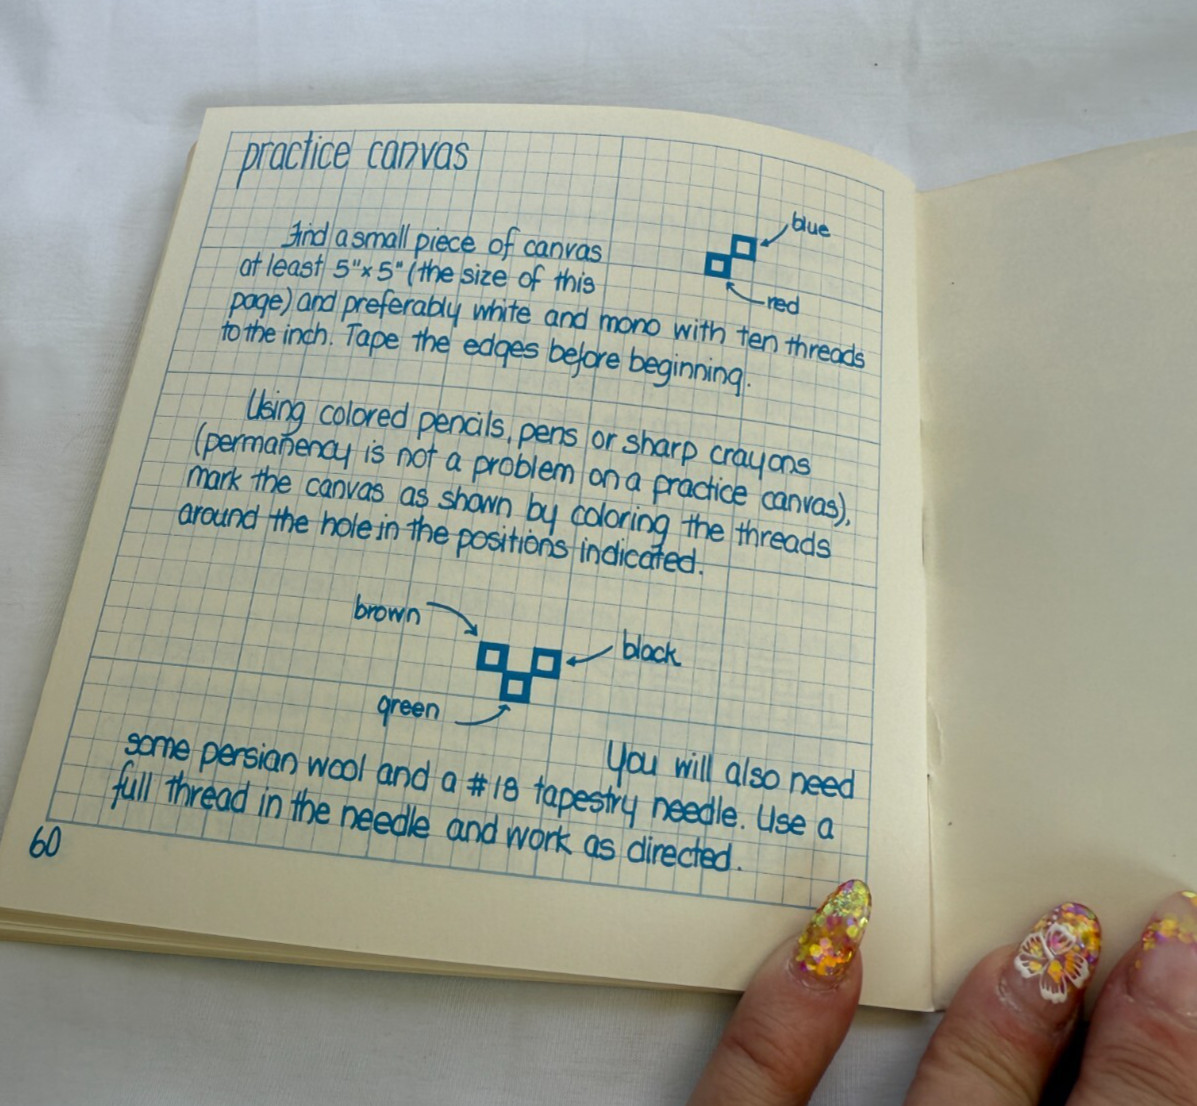 practice canvas
blue
red
Find a small piece of canvas
at least 5"x 5" (the size of this
page) and preferably white and mono with ten threads
to the inch. Tape the edges before beginning.
Using colored pencils, pens or sharp crayons
(permanency is not a problem on a practice canvas),
mark the canvas as shown by coloring the threads
around the hole in the positions indicated.
brown
black
green
You will also need
some persian wool and a #18 tapestry needle. Use a
full thread in the needle and work as directed.
60